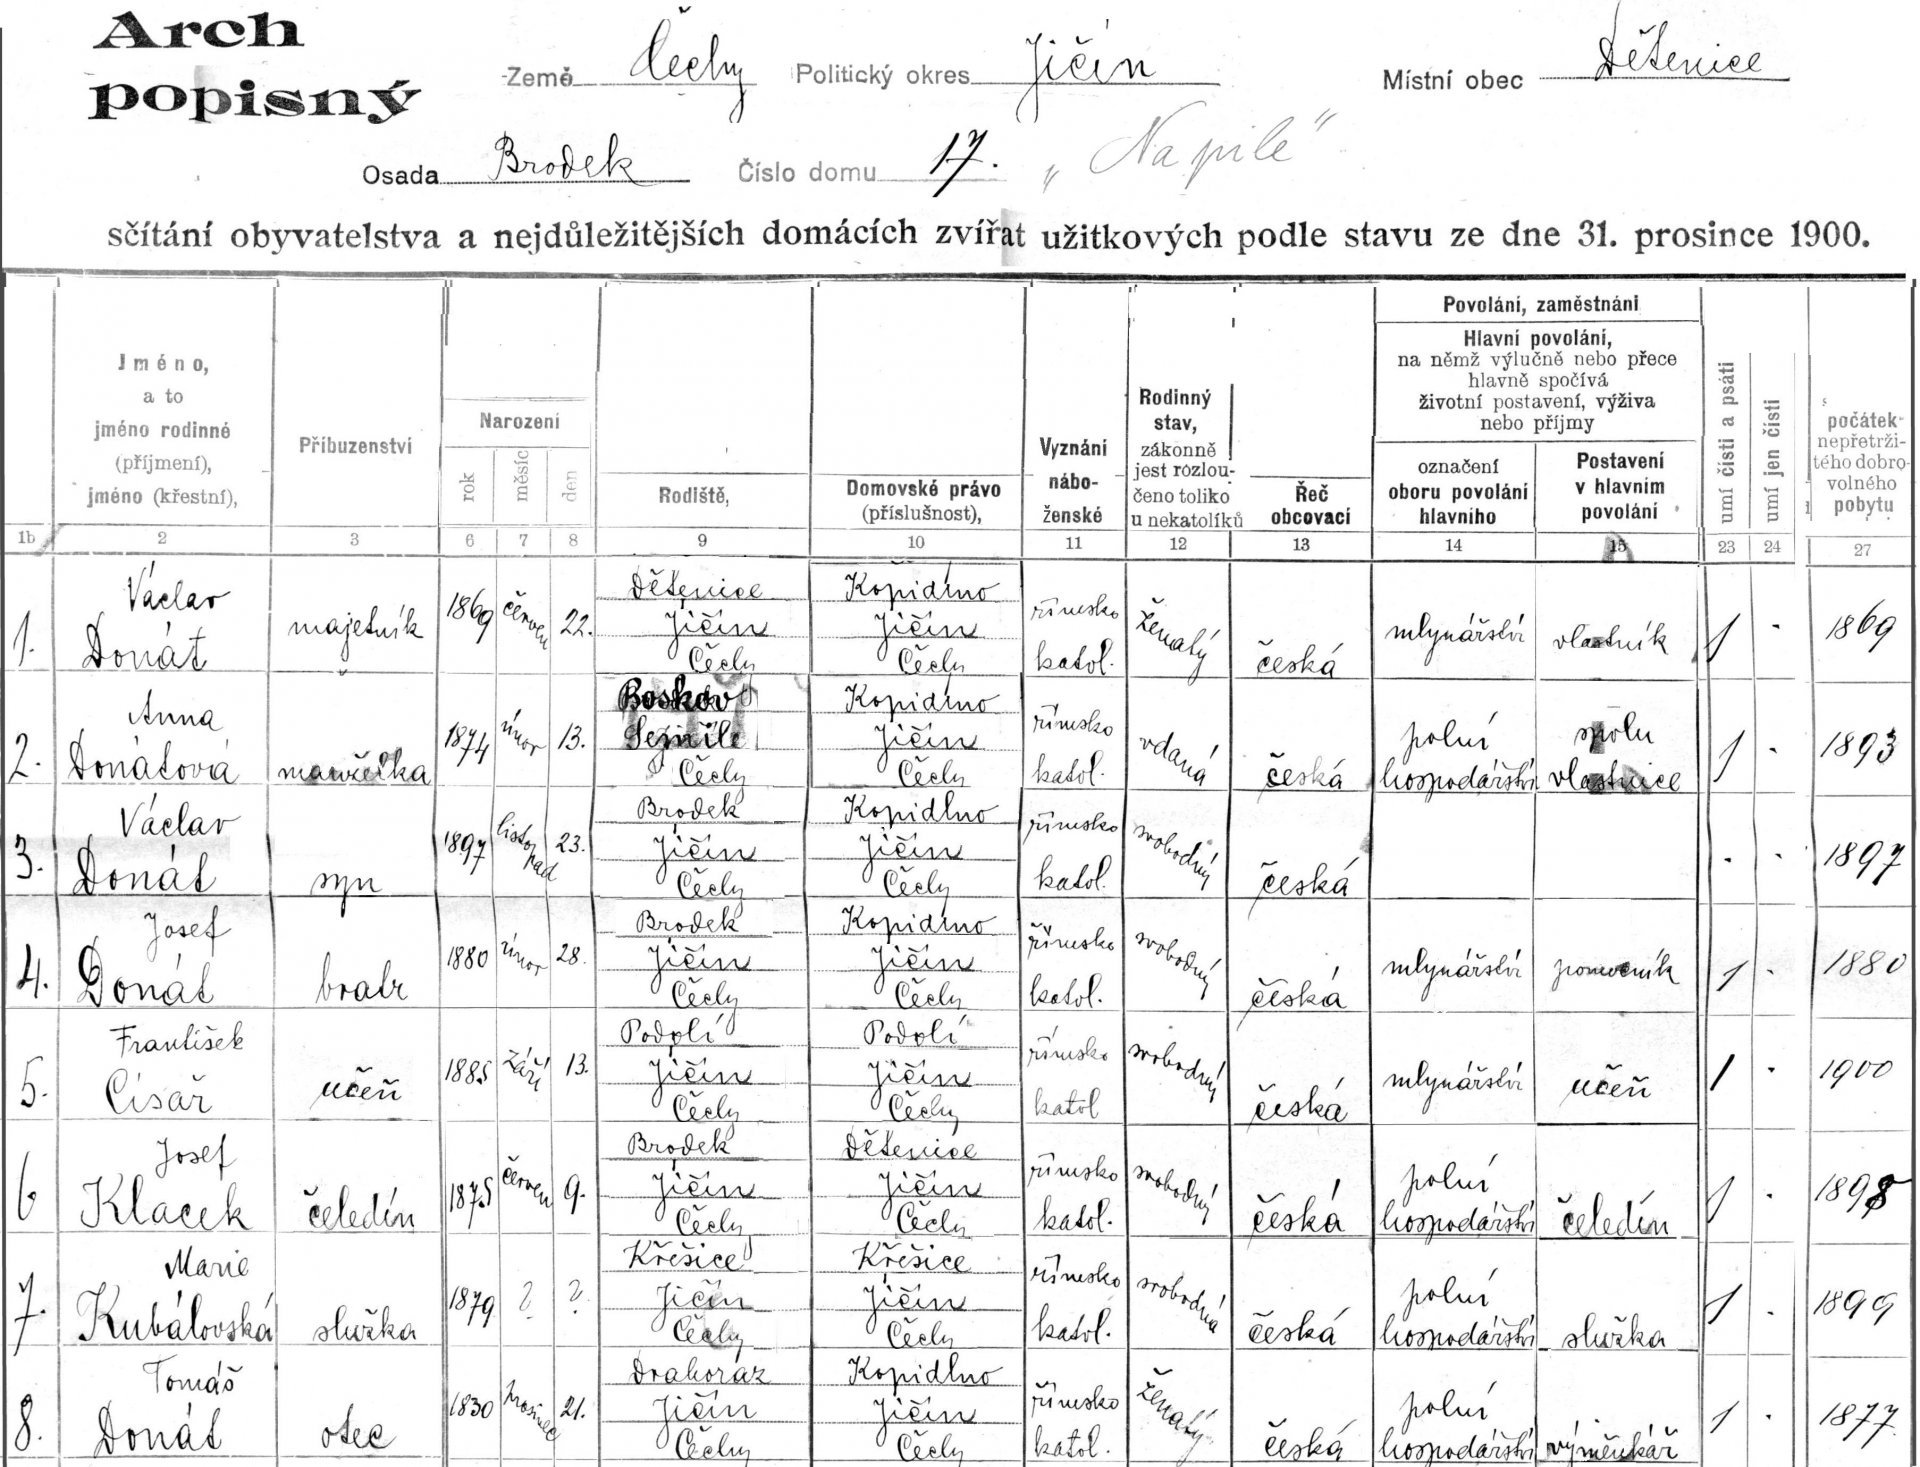 Arch
popisný
Země Čechy Politický okres Jičín Místní obec Dětenice
Osada Brodek Číslo domu 17. „Na pile"
sčítání obyvatelstva a nejdůležitějších domácích zvířat užitkových podle stavu ze dne 31. prosince 1900.
Jméno,
a to
jméno rodinné
(příjmení),
jméno (křestní),
Příbuzenství
Narození
rok
měsíc
den
Rodiště,
Domovské právo
(příslušnost),
Vyznání
nábo-
ženské
Rodinný
stav,
zákonně
jest rozlou-
čeno toliko
u nekatolíků
Řeč
obcovací
Povolání, zaměstnání
Hlavní povolání,
na němž výlučně nebo přece
hlavně spočívá
životní postavení, výživa
nebo příjmy
označení
oboru povolání
hlavního
Postavení
v hlavním
povolání
umí čísti a psáti
umí jen čísti
počátek
nepřetrži-
tého dobro-
volného
pobytu
1b 2 3 6 7 8 9 10 11 12 13 14 15 23 24 27
1. Václav
Donát
majetník 1869 červen 22.
Dětenice
Jičín
Čechy
Kopidlno
Jičín
Čechy
římsko
katol.
ženatý česká mlynářství vlastník 1 · 1869
2. Anna
Donátová
manželka 1874 únor 13.
Boskov
Semile
Čechy
Kopidlno
Jičín
Čechy
římsko
katol.
vdaná česká
polní
hospodářství
spolu
vlastnice
1 · 1893
3. Václav
Donát
syn 1897
listo
pad
23.
Brodek
Jičín
Čechy
Kopidlno
Jičín
Čechy
římsko
katol.
svobodný česká · · 1897
4. Josef
Donát
bratr 1880 únor 28.
Brodek
Jičín
Čechy
Kopidlno
Jičín
Čechy
římsko
katol.
svobodný česká mlynářství pomocník 1 · 1880
5. František
Císař
učeň 1885 září 13.
Podolí
Jičín
Čechy
Podolí
Jičín
Čechy
římsko
katol
svobodný česká mlynářství učeň 1 · 1900
6 Josef
Klacek
čeledín 1875 červen 9.
Brodek
Jičín
Čechy
Dětenice
Jičín
Čechy
římsko
katol.
svobodný česká
polní
hospodářství
čeledín 1 · 1898
7. Marie
Kubálovská
služka 1879 ? ?
Křešice
Jičín
Čechy
Křešice
Jičín
Čechy
římsko
katol.
svobodná česká
polní
hospodářství
služka 1 · 1899
8. Tomáš
Donát
otec 1830 prosinec 21.
Drahoraz
Jičín
Čechy
Kopidlno
Jičín
Čechy
římsko
katol.
ženatý česká
polní
hospodářství
výměnkář 1 · 1877